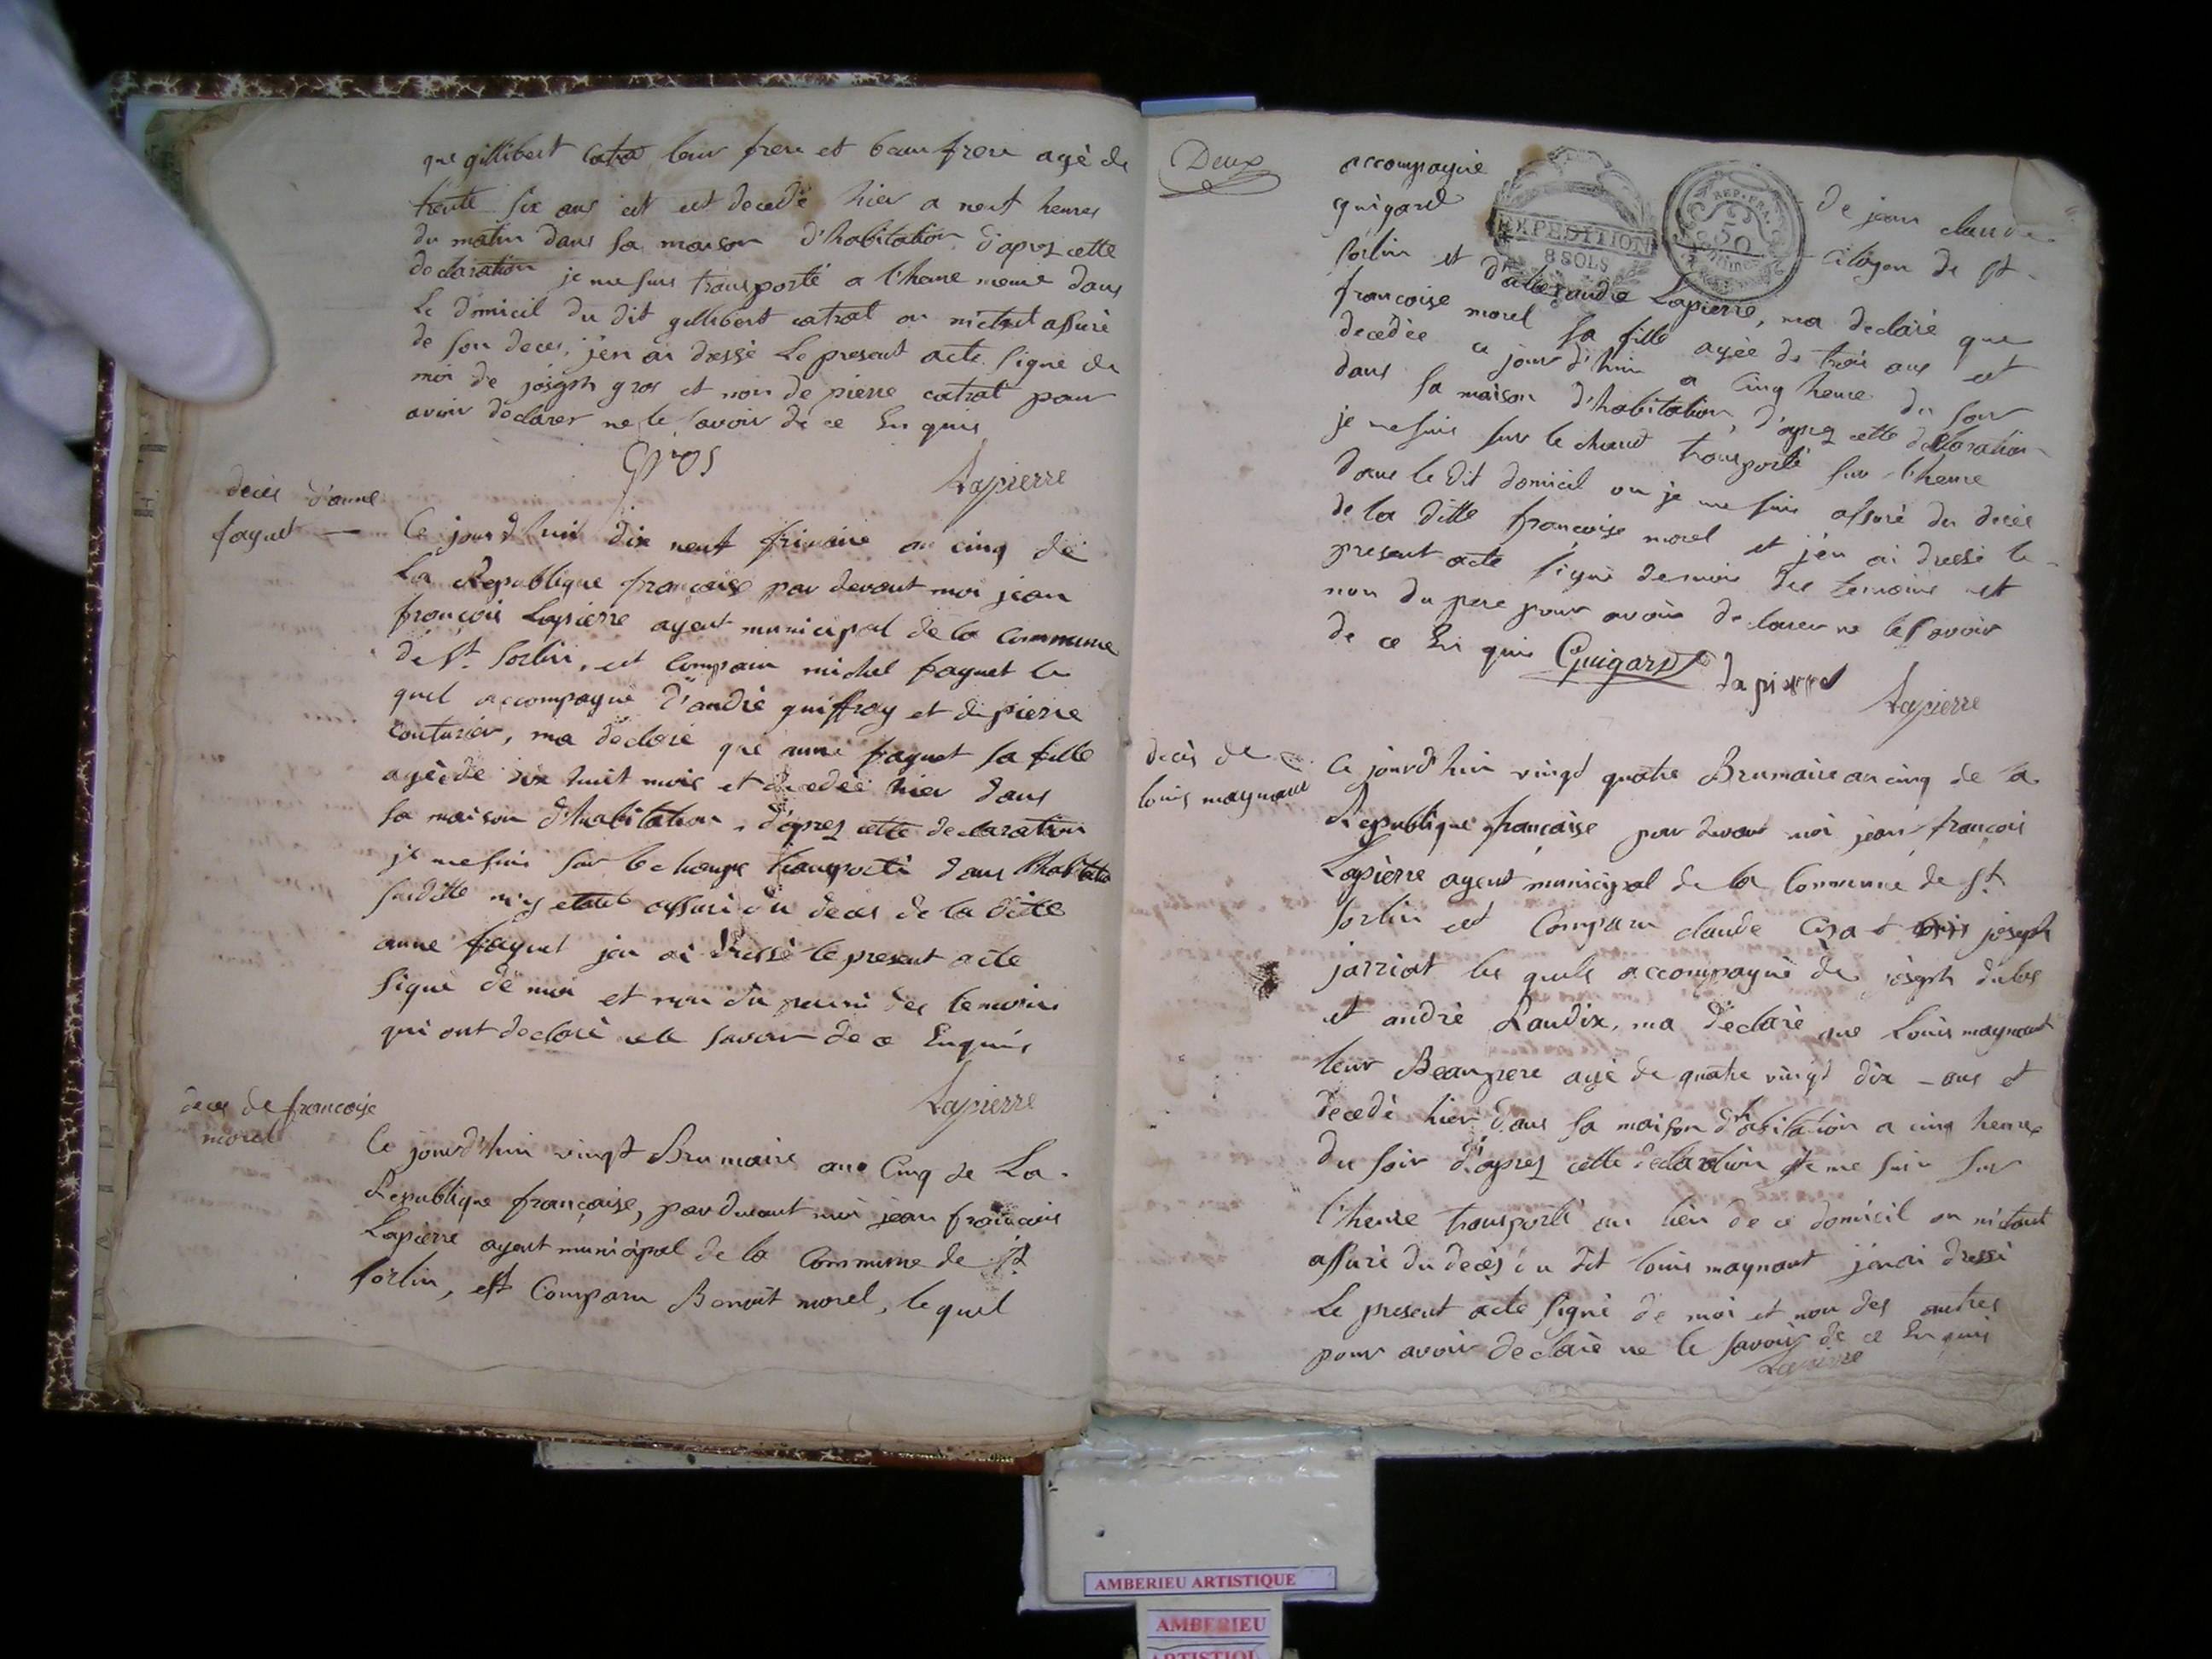 que gillibert catra leur frere et beau frere agè de
trente six ans est decedé hier a neuf heures
du matin dans sa maison d'habitation. d'apres cette
declaration je me suis transporté a l'heure meme dans
Le domicil du dit gillibert catrat ou m'etant assuré
de son deces, j'en ai dressé Le present acte signé de
moi de joseph gros et non de pierre catrat pour
avoir declarer ne le savoir de ce Enquis
Gros
Lapierre
decès d'anne
faguet
Ce jourd'hui dix neuf frimaire an cinq de
La Republique françoise par devant moi jean
françois Lapierre agent municipal de la commune
de St. Sorlin, est comparu michel faguet le
quel accompagné d'andré guiffray et de pierre
couturier, ma declaré que anne faguet sa fille
agée de dix huit mois et decedée hier dans
sa maison d'habitation, d'apres cette declaration
je me suis sur le champ transporté dans l'habitatio
susditte m'y etant assuré du deces de la ditte
anne faguet jen ai dressé le present acte
signé de moi et non du ni des temoins
qui ont declaré ne le savoir de ce Enquis
Lapierre
deces de francoise
morel
Ce jourd'hui vingt Brumaire ans Cinq de La
Republique française, par devant moi jean francois
Lapierre agent municipal de la Commune de St
sorlin, est Comparu Benoit morel, lequel
Deux
accompagné de jean claude
guigard citoyen de St
EXPEDITION
8 SOLS
REP. FRA.
50
centimes
sorlin et d'alexandre Lapierre, ma declaré que
francoise morel sa fille agée de trois ans est
decedée ce jour d'hui a Cinq heure du soir
dans sa maison d'habitation, d'apres cette declaration
je me suis sur le champ transporté sur l'heure
dans le dit domicil ou je me suis assuré du decès
de la ditte françoise morel et j'en ai dressé le
present acte signé de moi des temoins et
non du pere pour avoir declarer ne le savoir
de ce Enquis Guigard
Lapierre
Lapierre
decès de
louis maynant
Ce jourd'hui vingt quatre Brumaire an cinq de la
Republique française par devant moi jean françois
Lapierre agent municipal de la Commune de St
sorlin est Comparu claude joseph
jarriat les quels accompagné de joseph
et andré Landix, ma declaré que Louis maynant
leur Beaupere agé de quatre vingt dix - ans et
decedé hier dans sa maison d'habitation a cinq heures
du soir d'apres cette declaration je me suis sur
l'heure transporté au lieu de ce domicil ou m'etant
assuré du decès du dit louis maynant j'en ai dressé
Le present acte signé de moi et non des autres
pour avoir declaré ne le savoir de ce Enquis
Lapierre
AMBERIEU ARTISTIQUE
AMBERIEU
ARTISTIQUE